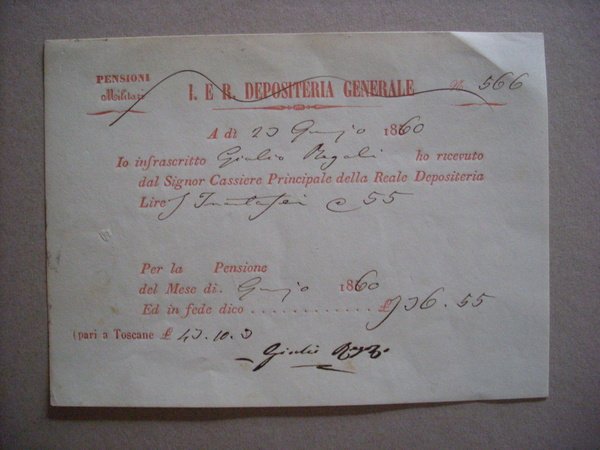 PENSIONI
Militari
I. E R. DEPOSITERIA GENERALE
N. 566
A dì 23 Giugno 1860
Io infrascritto Giulio Regali ho ricevuto
dal Signor Cassiere Principale della Reale Depositeria
Lire Trentasei e 55
Per la Pensione
del Mese di Giugno 1860
Ed in fede dico ............ £ 36.55
(pari a Toscane £ 43.10.3
Giulio